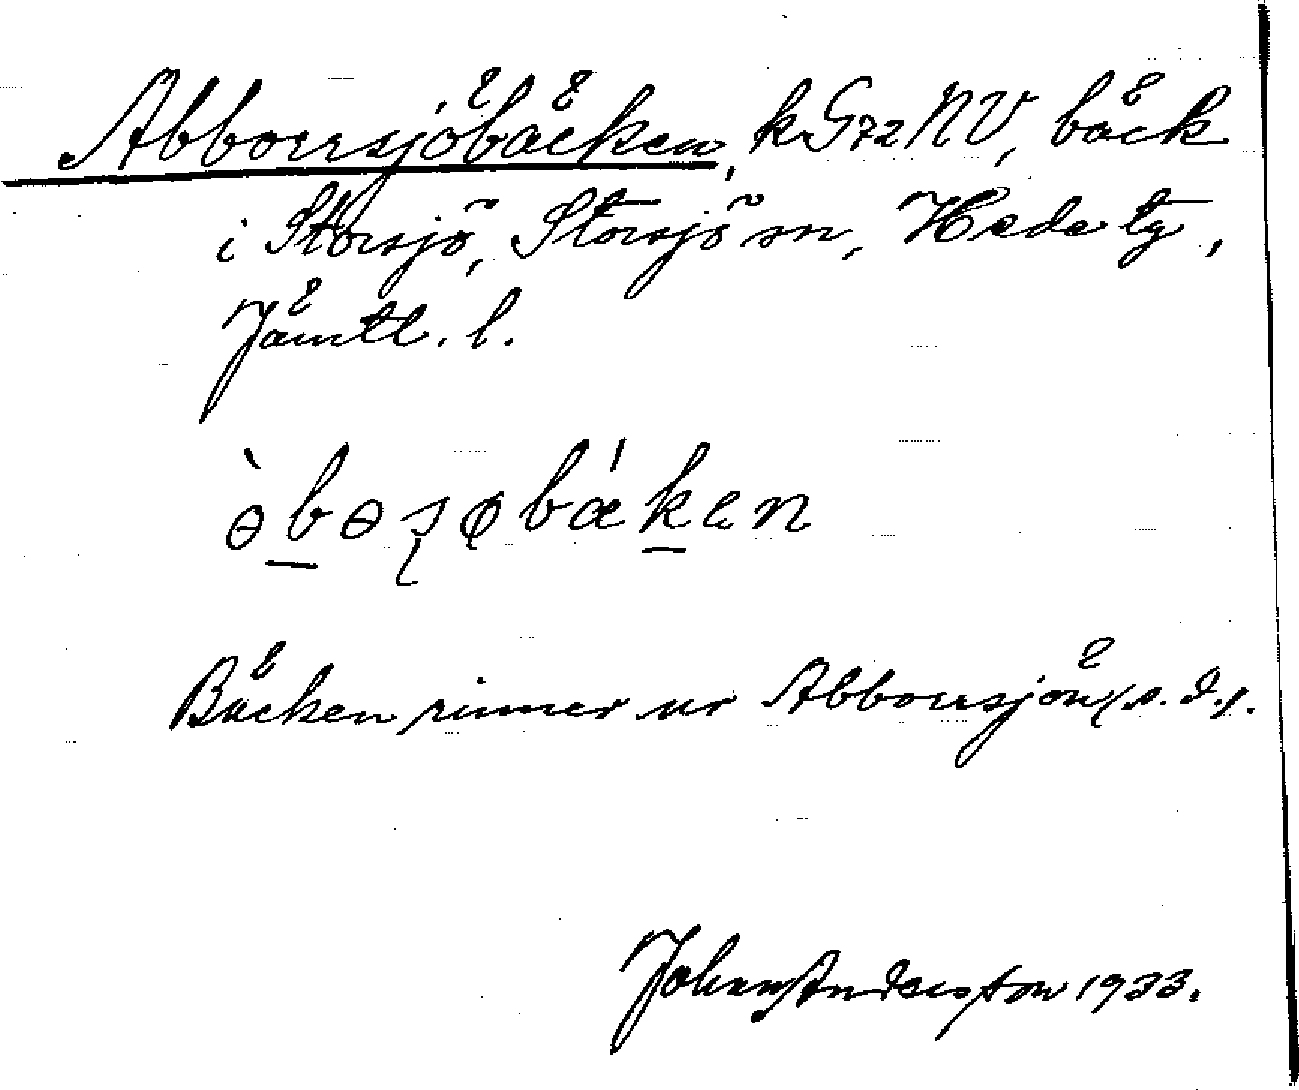 Abborrsjöbäcken, kG72NV, bäck
i Storsjö, Storsjö sn, Hede tg,
Jämtl. l.
Bäcken rinner ur Abborrsjön (s.d.).
Johan Andersson 1933.